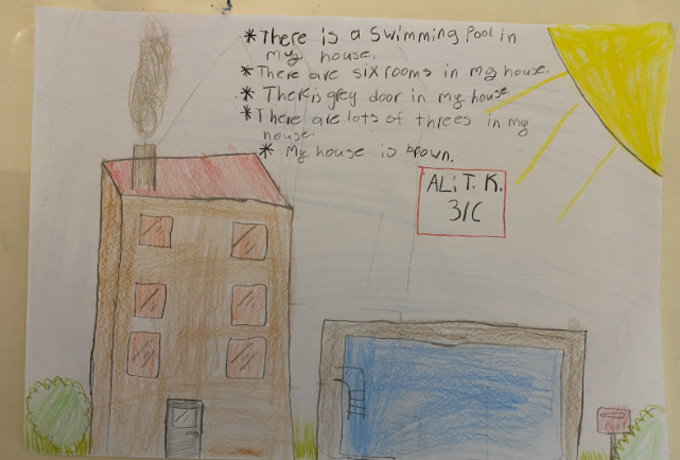 *There is a Swimming Pool in
my house.
*There are six rooms in my house.
* Ther is grey door in my house.
*There are lots of threes in my
house.
* My house is brown.
ALi T. K.
3/C